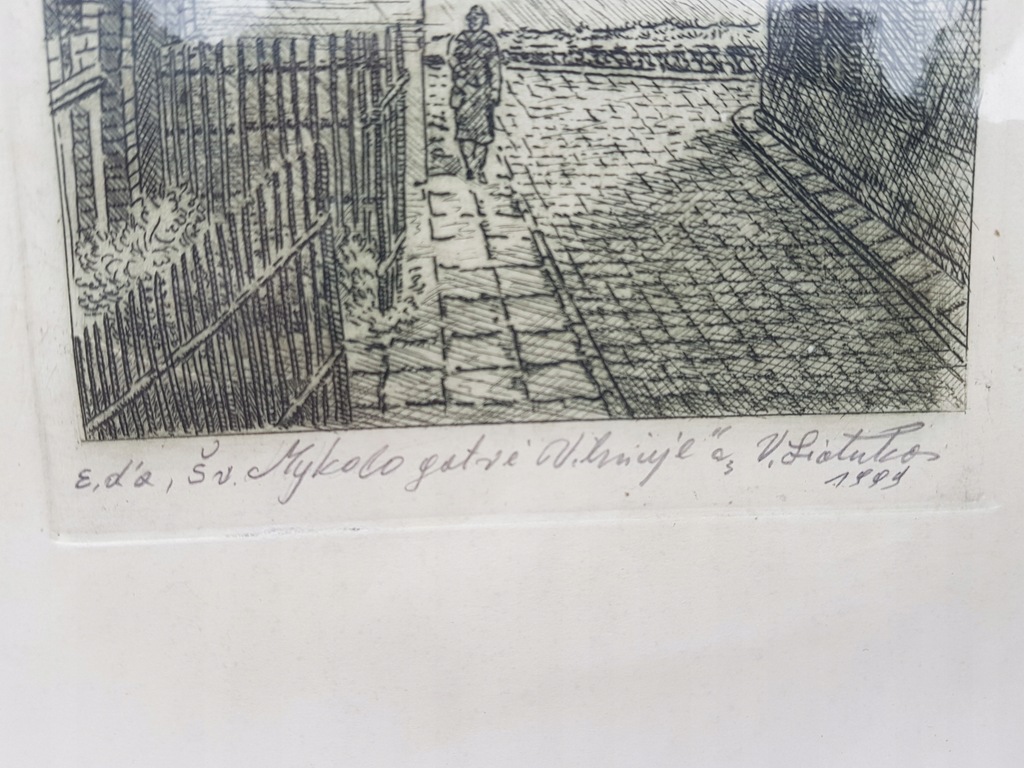 E.d'a, Šv. Mykolo gatvė Vilniuje" a, V. Liatukas
1999